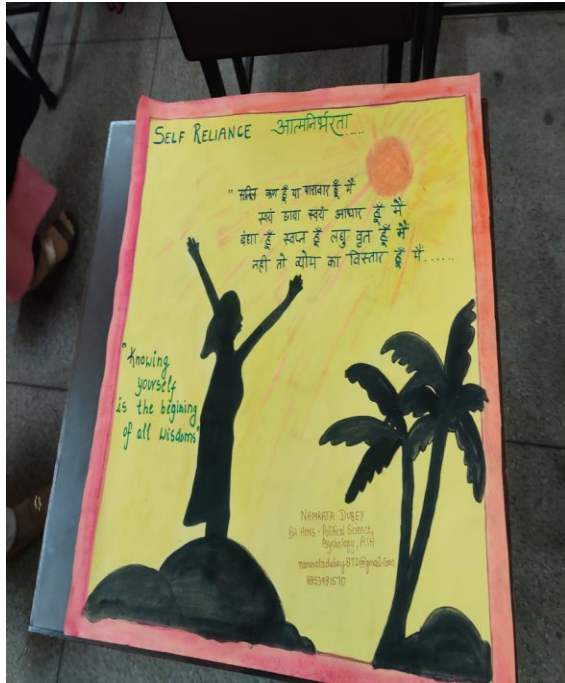 SELF RELIANCE आत्मनिर्भरता.....
" सलिल कण हूँ या पारावार हूँ मैं
स्वयं छाया स्वयं आधार हूँ मैं
बंधा हूँ स्वप्न हूँ लघु वृत हूँ मैं
नही तो व्योम का विस्तार हूँ मैं......
"Knowing
yourself
is the begining
of all wisdoms"
NAMRATA DUBEY
BA Hons - Political Science,
Psychology, AIH
8853981570